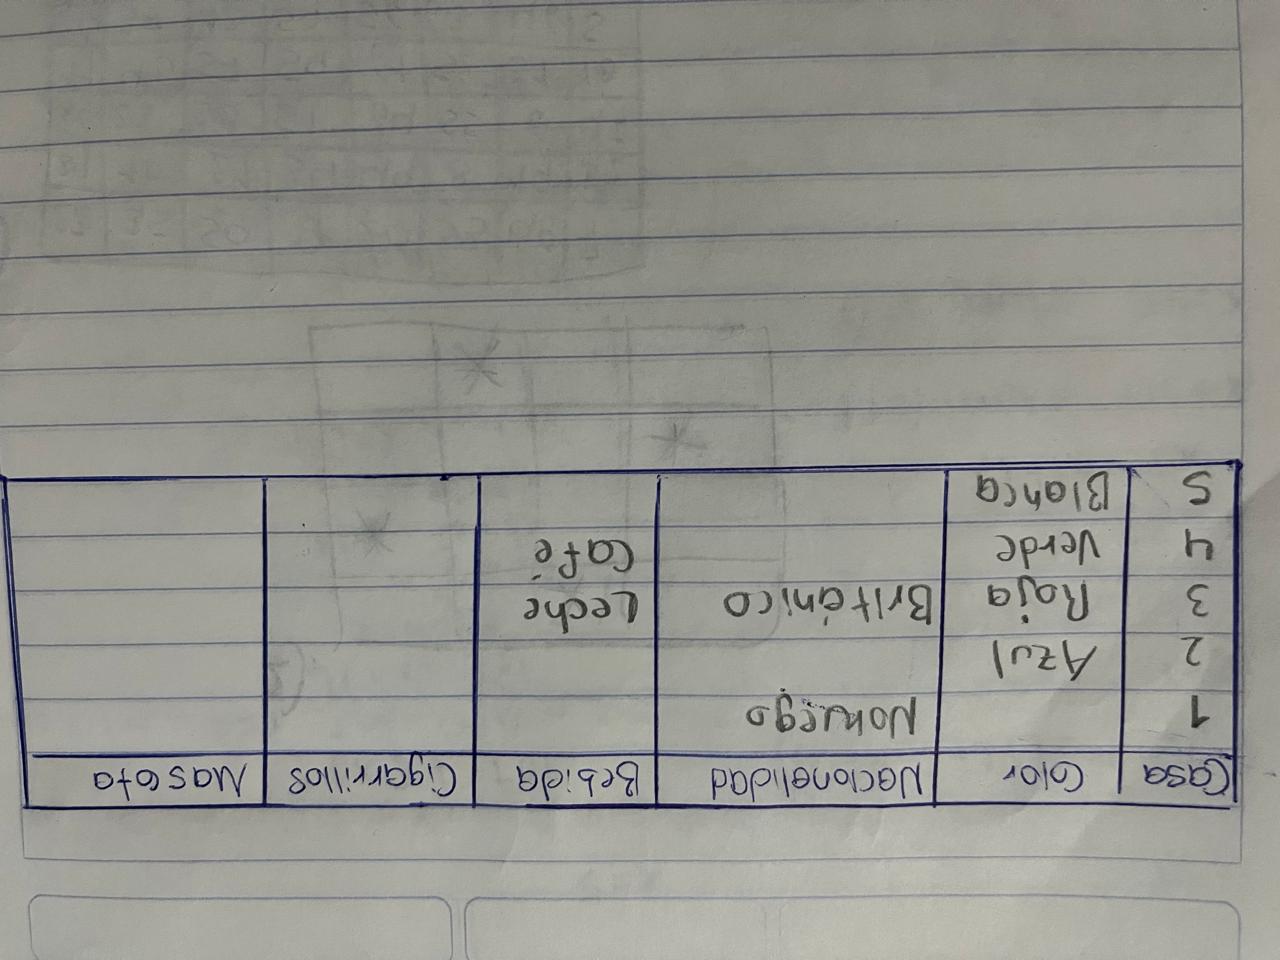 Casa Color Nacionalidad Bebida Cigarrillos Mascota
1 Noruego
2 Azul
3 Roja Británico Leche
4 Verde Café
5 Blanca